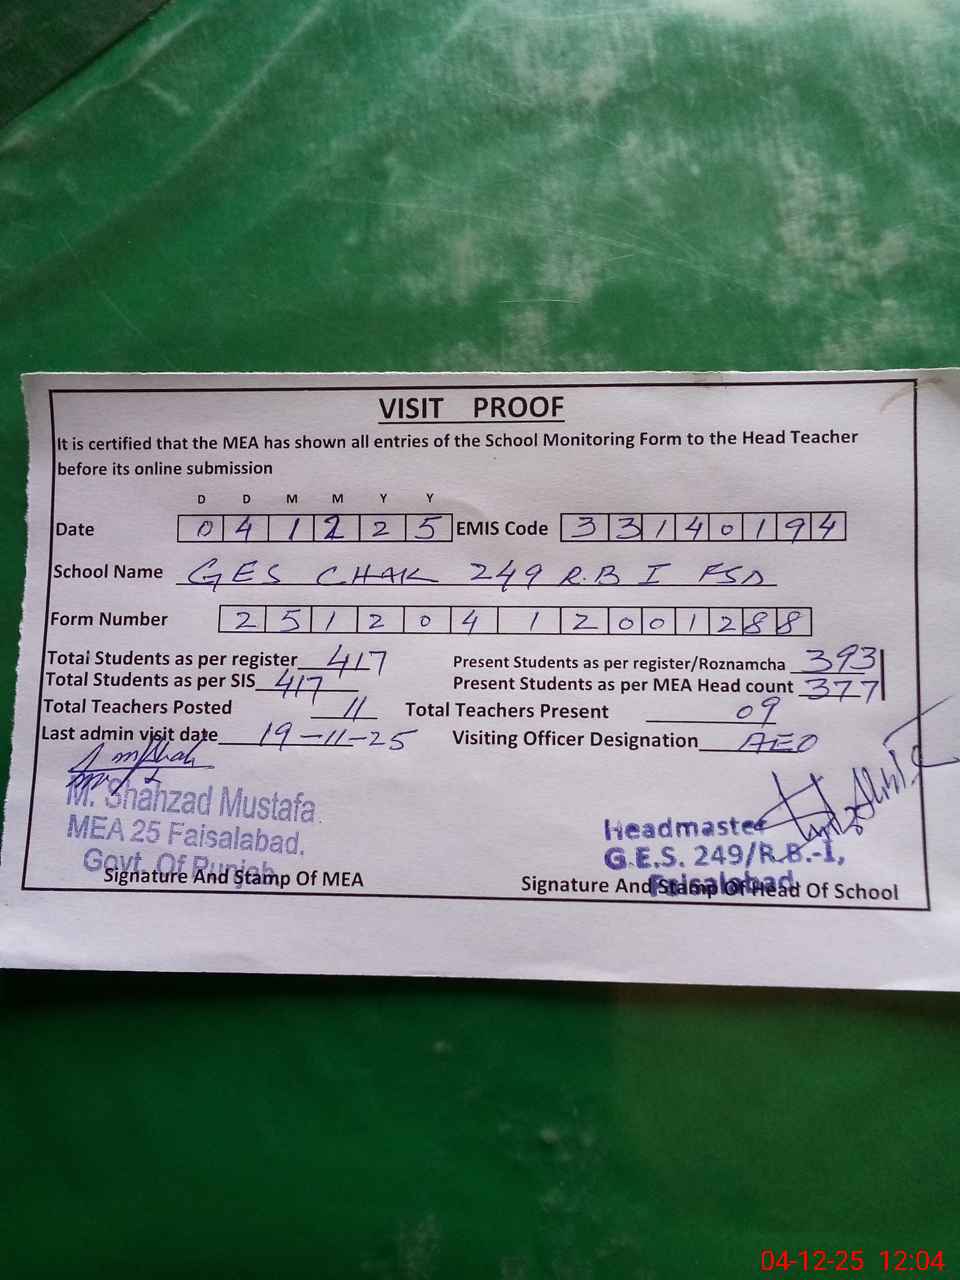 VISIT PROOF
It is certified that the MEA has shown all entries of the School Monitoring Form to the Head Teacher
before its online submission
D D M M Y Y
Date 0 4 1 2 2 5 EMIS Code 3 3 1 4 0 1 9 4
School Name GES CHAK 249 R.B I FSD
Form Number 2 5 1 2 0 4 1 2 0 0 1 2 8 8
Total Students as per register 417 Present Students as per register/Roznamcha 393
Total Students as per SIS 417 Present Students as per MEA Head count 377
Total Teachers Posted 11 Total Teachers Present 09
Last admin visit date 19-11-25 Visiting Officer Designation AEO
M. Shahzad Mustafa
MEA 25 Faisalabad.
Govt. Of Punjab
Signature And Stamp Of MEA
Headmaster
G.E.S. 249/R.B.-I,
Faisalabad
Signature And Stamp Of Head Of School
04-12-25 12:04